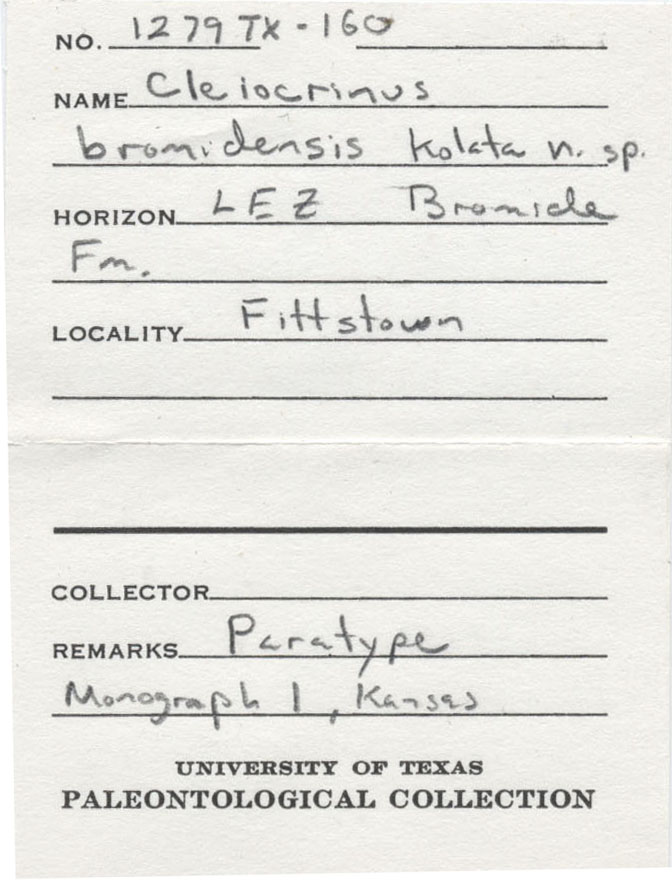 NO. 1279TX-160
NAME Cleiocrinus
bromidensis Kolata n. sp.
HORIZON LEZ Bromide
Fm.
LOCALITY Fittstown
COLLECTOR
REMARKS Paratype
Monograph 1, Kansas
UNIVERSITY OF TEXAS
PALEONTOLOGICAL COLLECTION